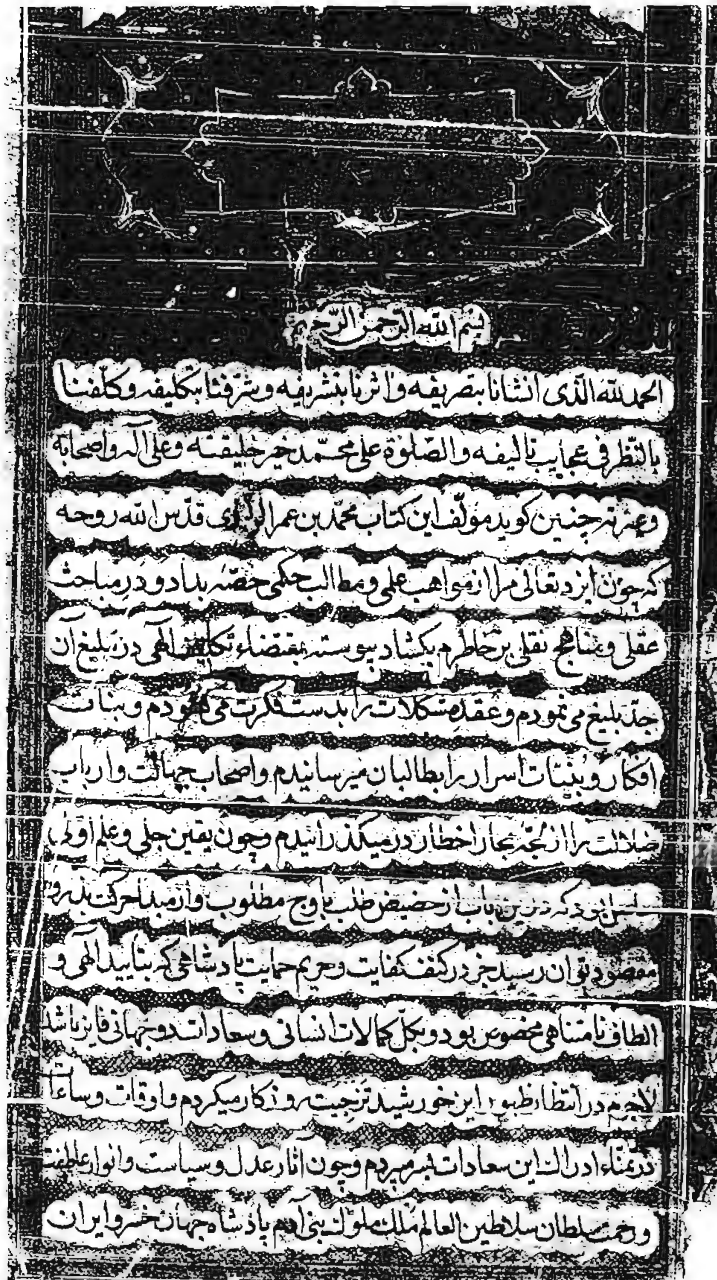 بسم الله الرحمن الرحیم
الحمد لله الّذی انشانا بتصریفه واثرنا بتشریفه وشرّفنا بتکلیفه وکلّفنا
بالنّظر فی عجایب تالیفه والصّلوة علی محمّد خیر خلیقته وعلی آله واصحابه
وعترته چنین کوید مولّف این کتاب محمّد بن عمر الرازی قدّس الله روحه
که چون ایزد تعالی مرا از مواهب علمی ومطالب حکمی حصّه بداد و در مباحث
عقلی ومناهج نقلی بر خاطرم بکشاد پیوسته بمقتضاء تکلیف الهی در تبلیغ آن
جدّ بلیغ می نمودم وعقده مشکلات را بدست فکرت می کشودم وبنات
افکار و بنیّات اسرار را بطالبان میرسانیدم واصحاب جهالت وارباب
ضلالت را از لجّه بحار اخطار در میکذرانیدم وچون یقین جلی وعلم اولی
حاصل بود که درین باب از حضیض طلب باوج مطلوب واز مبدا حرکت بذروه
مقصود نتوان رسید جز در کنف کفایت وحریم حمایت پادشاهی که بتایید الهی و
الطاف نامتناهی مخصوص بود و بکلّ کمالات انسانی وسعادات دو جهانی فایز باشد
لاجرم در انتظار ظهور این خورشید تزجیت روزکار میکردم واوقات وساعات
در تمنّاء ادراک این سعادات بسر میبردم وچون آثار عدل وسیاست وانوار عاطفت
ورحمت سلطان سلاطین العالم ملک ملوک بنی آدم پادشاه جهان خسرو ایران